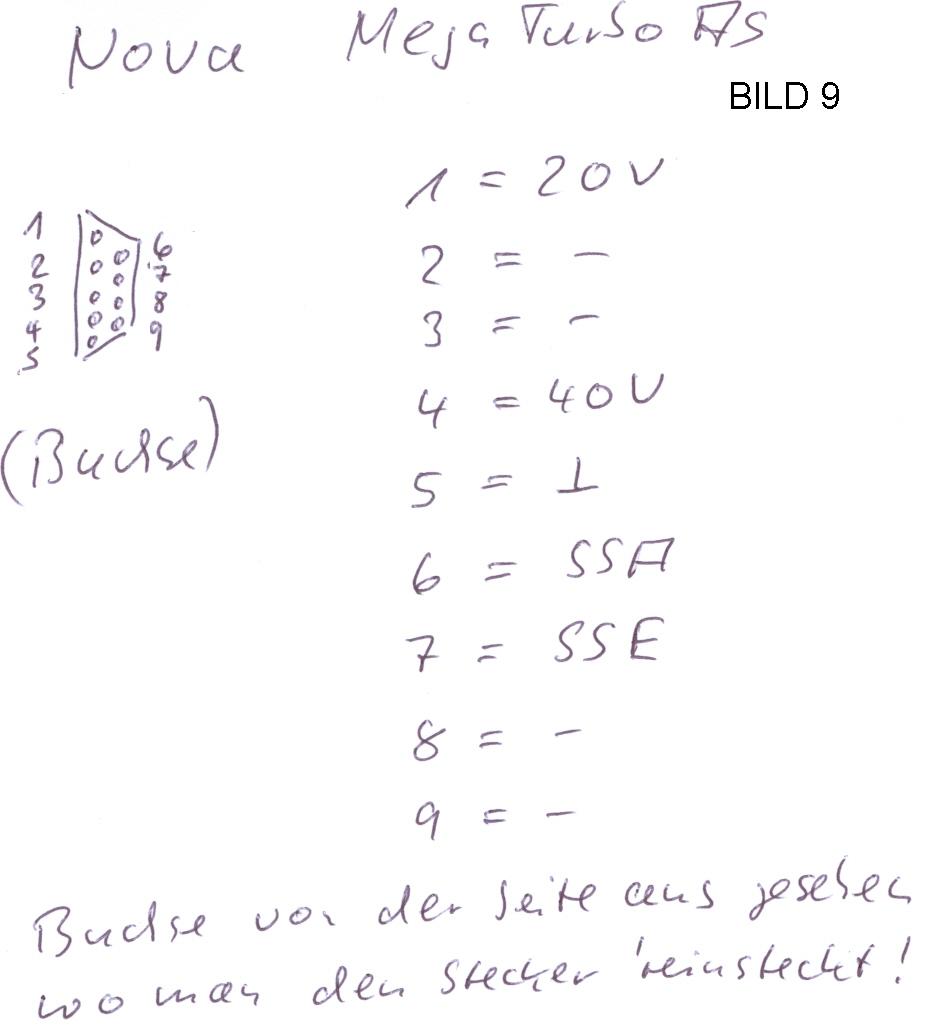 Nova Mega Turbo AS
BILD 9
1 = 20V
2 = -
3 = -
4 = 40V
5 = ⊥
6 = SSA
7 = SSE
8 = -
9 = -
1
2
3
4
5
6
7
8
9
(Buchse)
Buchse von der Seite aus gesehen
wo man den Stecker 'reinsteckt!